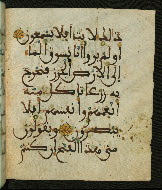 ذلك لايت افلا يسمعون
اولم يروا انا نسوق الما
الى الارض الجرز فنخرج
به زرعا تاكل منه
انعمهم وانفسهم افلا
يبصرون ويقولون
متى هذا الفتح ان كنتم